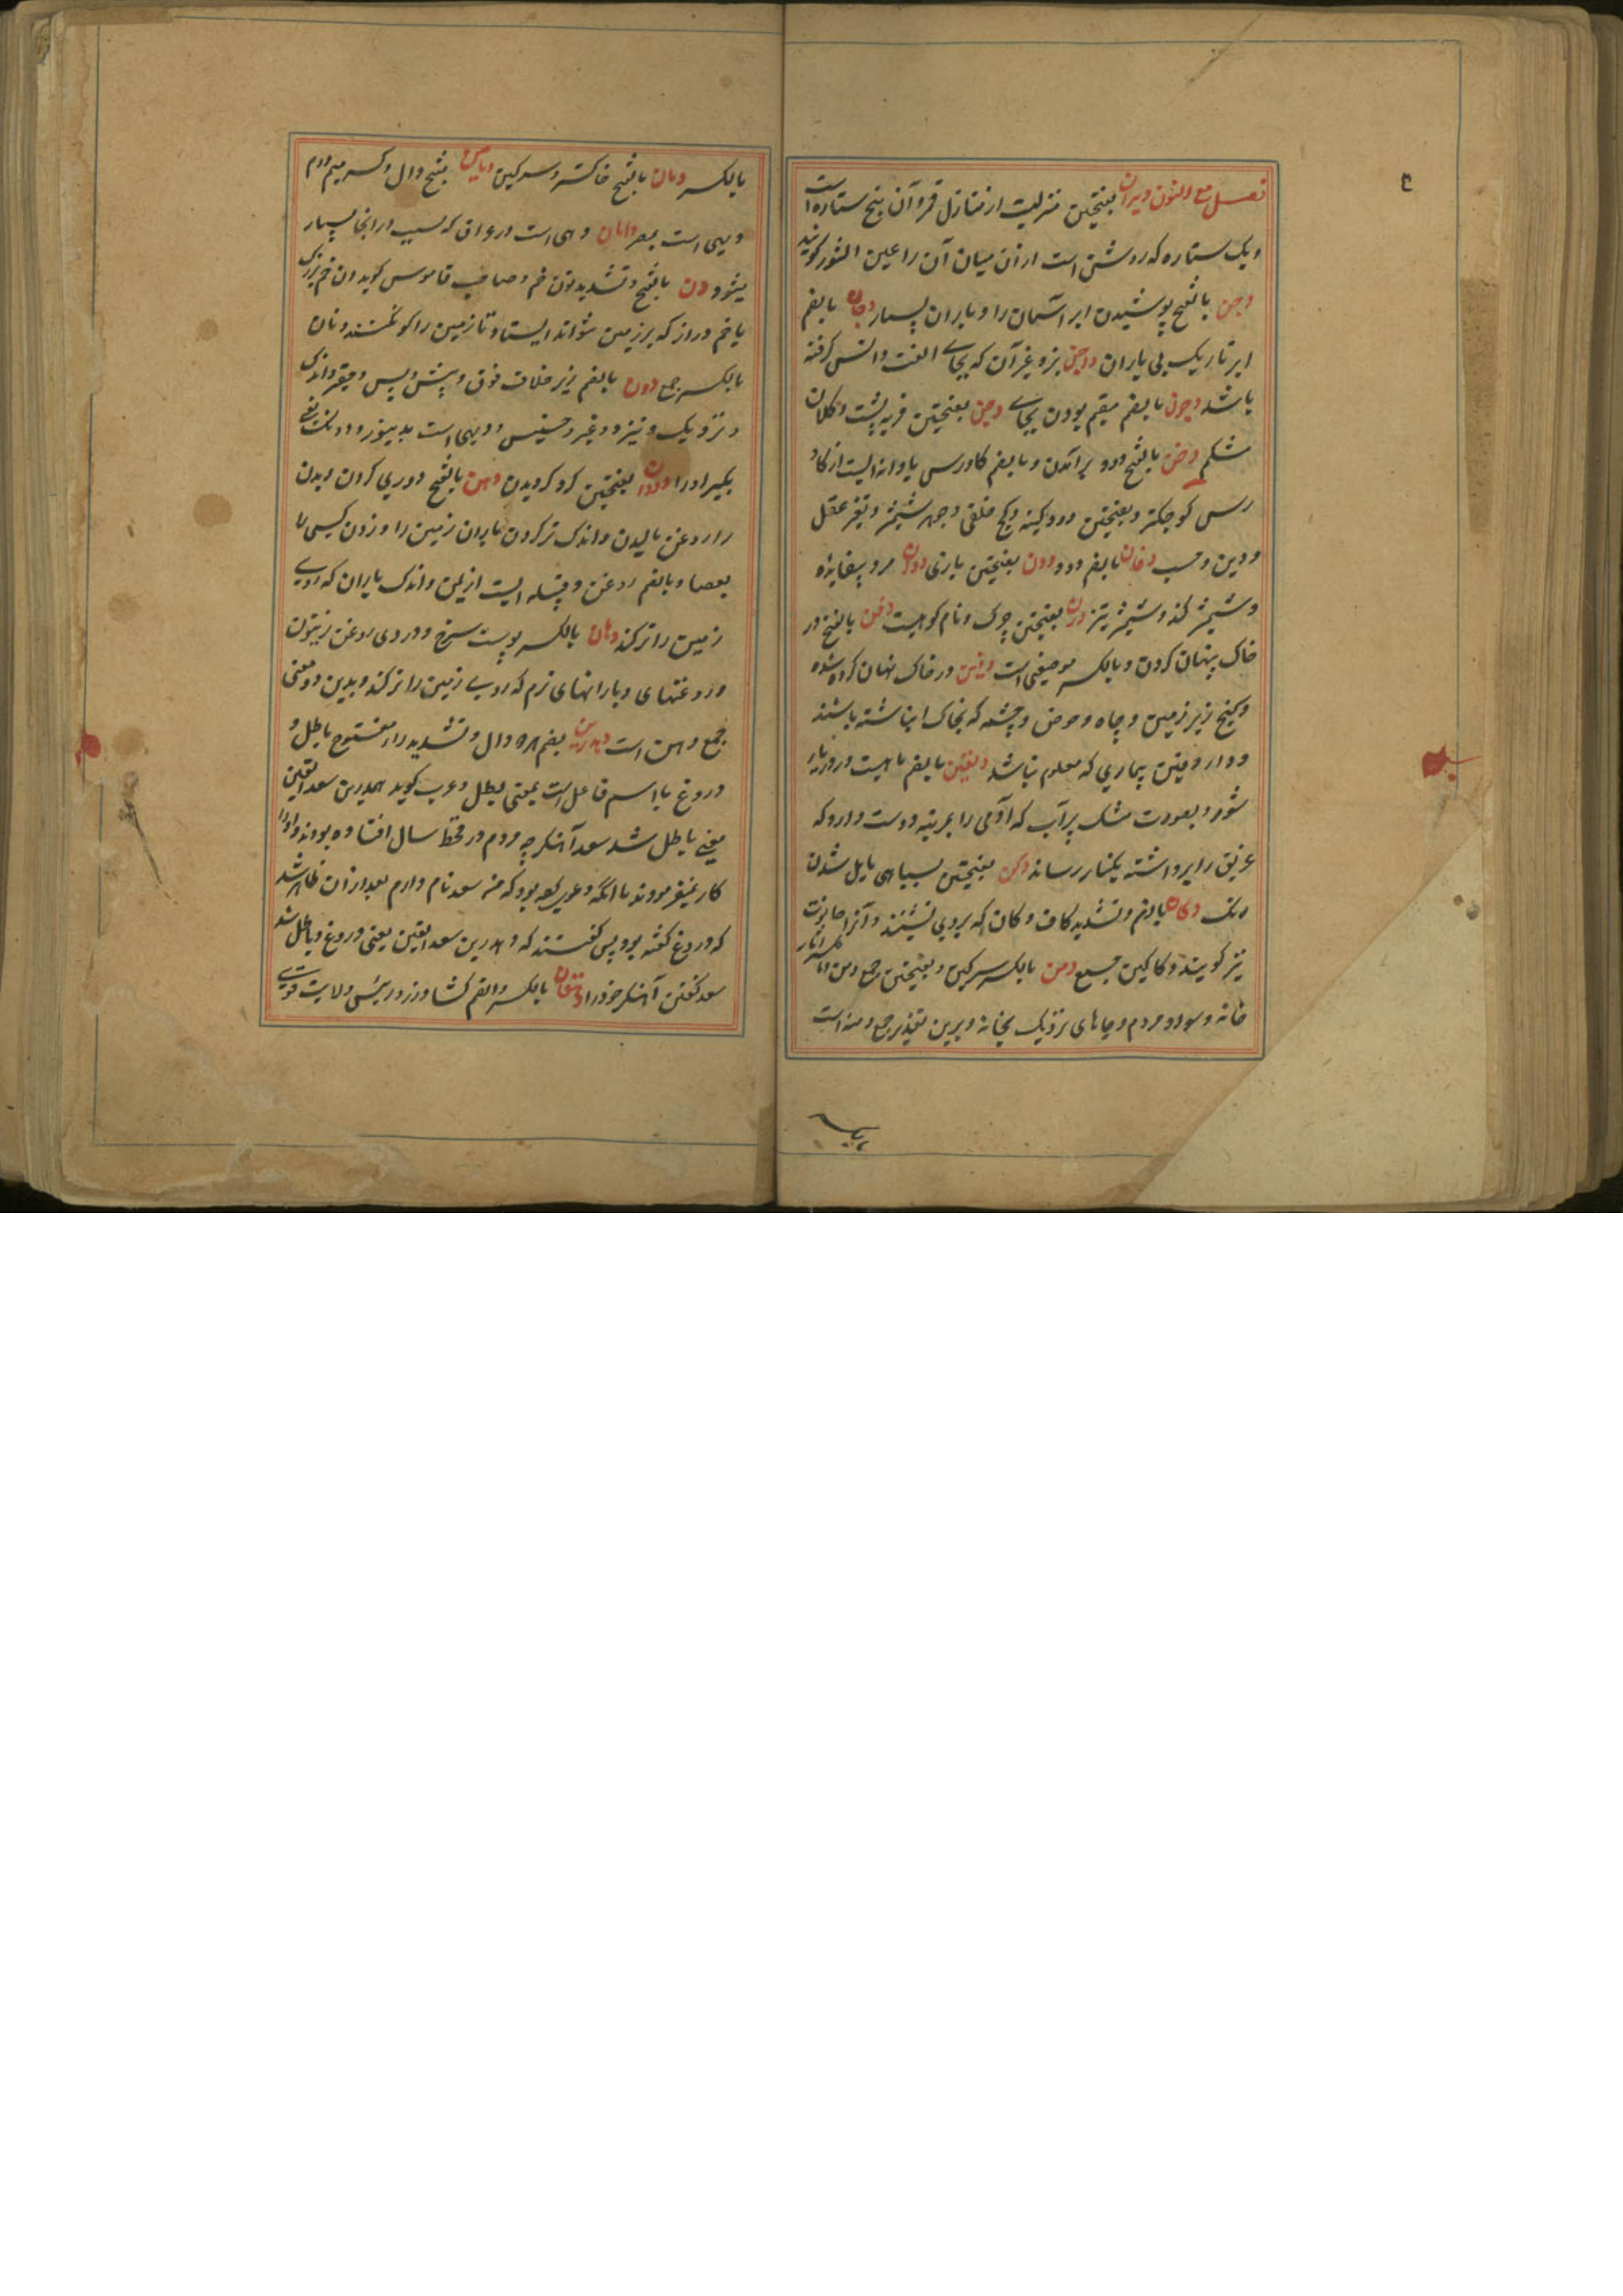 فصل مع النون دبران بفتحتین منزلیست از منازل قمر و آن پنج ستاره است
و یک ستاره که روشن است ازان میان آن را عین الثور گویند
دجن بالفتح پوشیدن ابر آسمان را و باران بسیار دجان بالضم
ابر تاریک بی باران داجن بز و غیر آن که بجای الفت و انس گرفته
باشد دجون بالضم مقیم بودن بجای دحن بفتحتین فربه پشت و کلان
شکم دخن بالفتح دود برآمدن و بالضم کاورس یا دانه ایست از کاو
رس کوچکتر و بفتحتین دود و کینه و کج خلقی و جوهر شمشیر و تغیر عقل
و دین و حسب دخان بالضم دود ددن بفتحتین بازی ددان مرد بیفایده
و شمشیر کند و شمشیر تیز درن بفتحتین چرک و نام کوهیست دفن بالفتح در
خاک پنهان کردن و بالکسر موضعی است دفین در خاک نهان کرده شده
و گنج زیر زمین و چاه و حوض و چشمه که بخاک انباشته باشند
و داء دفین بیماری که معلوم نباشد دلفین بالضم ماهیست در دریای
شور و بصورت مشک پرآب که آدمی را بمرتبه دوست دارد که
غریق را برداشته بکنار رساند دکن بفتحتین بسیاهی مایل شدن
رنگ دکان بالضم و تشدید کاف دکان که بروی نشینند و آنرا حانوت
نیز گویند دکاکین جمع دمن بالکسر سرگین و بفتحتین جمع دمن
خانه و سواد مردم و جاهای نزدیک بخانه و برین تقدیر جمع دمنه است
بالکسر دمان بالفتح خاکستر و سرگین دمامین بفتح دال و کسر میم دوم
دیهی است بمصر دامان دهی است در عراق که سیب در انجا بسیار
میشود دن بالفتح و تشدید نون خم و صاحب قاموس گوید دن خم بزرگ
یا خم دراز که بر زمین نتواند ایستاد تا زمین را گو نکنند دنان
بالکسر جمع دون بالضم زیر خلاف فوق و پیش و پس و حقیر و اندک
و نزدیک و نیز و غیر و خسیس و دیهی است بدینور و دونک یعنی
بگیر او را بفتحتین گرد گردیدن دهن بالفتح دوری کردن و بدن
را روغن مالیدن و اندک تر کردن باران زمین را و زدن کسی را
بعصا و بالضم روغن و قبیله ایست از یمن و اندک باران که روی
زمین را تر کند دهان بالکسر پوست سرخ و دردی روغن زیتون
و روغنهای و بارانهای نرم که روی زمین را تر کند و بدین دو معنی
جمع دهن است دهدرین بضم هر دو دال و تشدید راء مفتوح باطل و
دروغ یا اسم فاعل است بمعنی بطل و عرب گوید دهدرین سعد القین
یعنی باطل شد سعد آهنگر چه مردم در قحط سال افتاده بودند و او را
کار نمیفرمودند با آنکه دعوی کرده بود که من سعد نام دارم بعد ازان ظاهر شد
که دروغ گفته بود پس گفتند که دهدرین سعد القین یعنی دروغ و باطل شد
سعد گفتن آهنگر خود را دهقان بالکسر و الضم کشاورز و رئیس ولایت